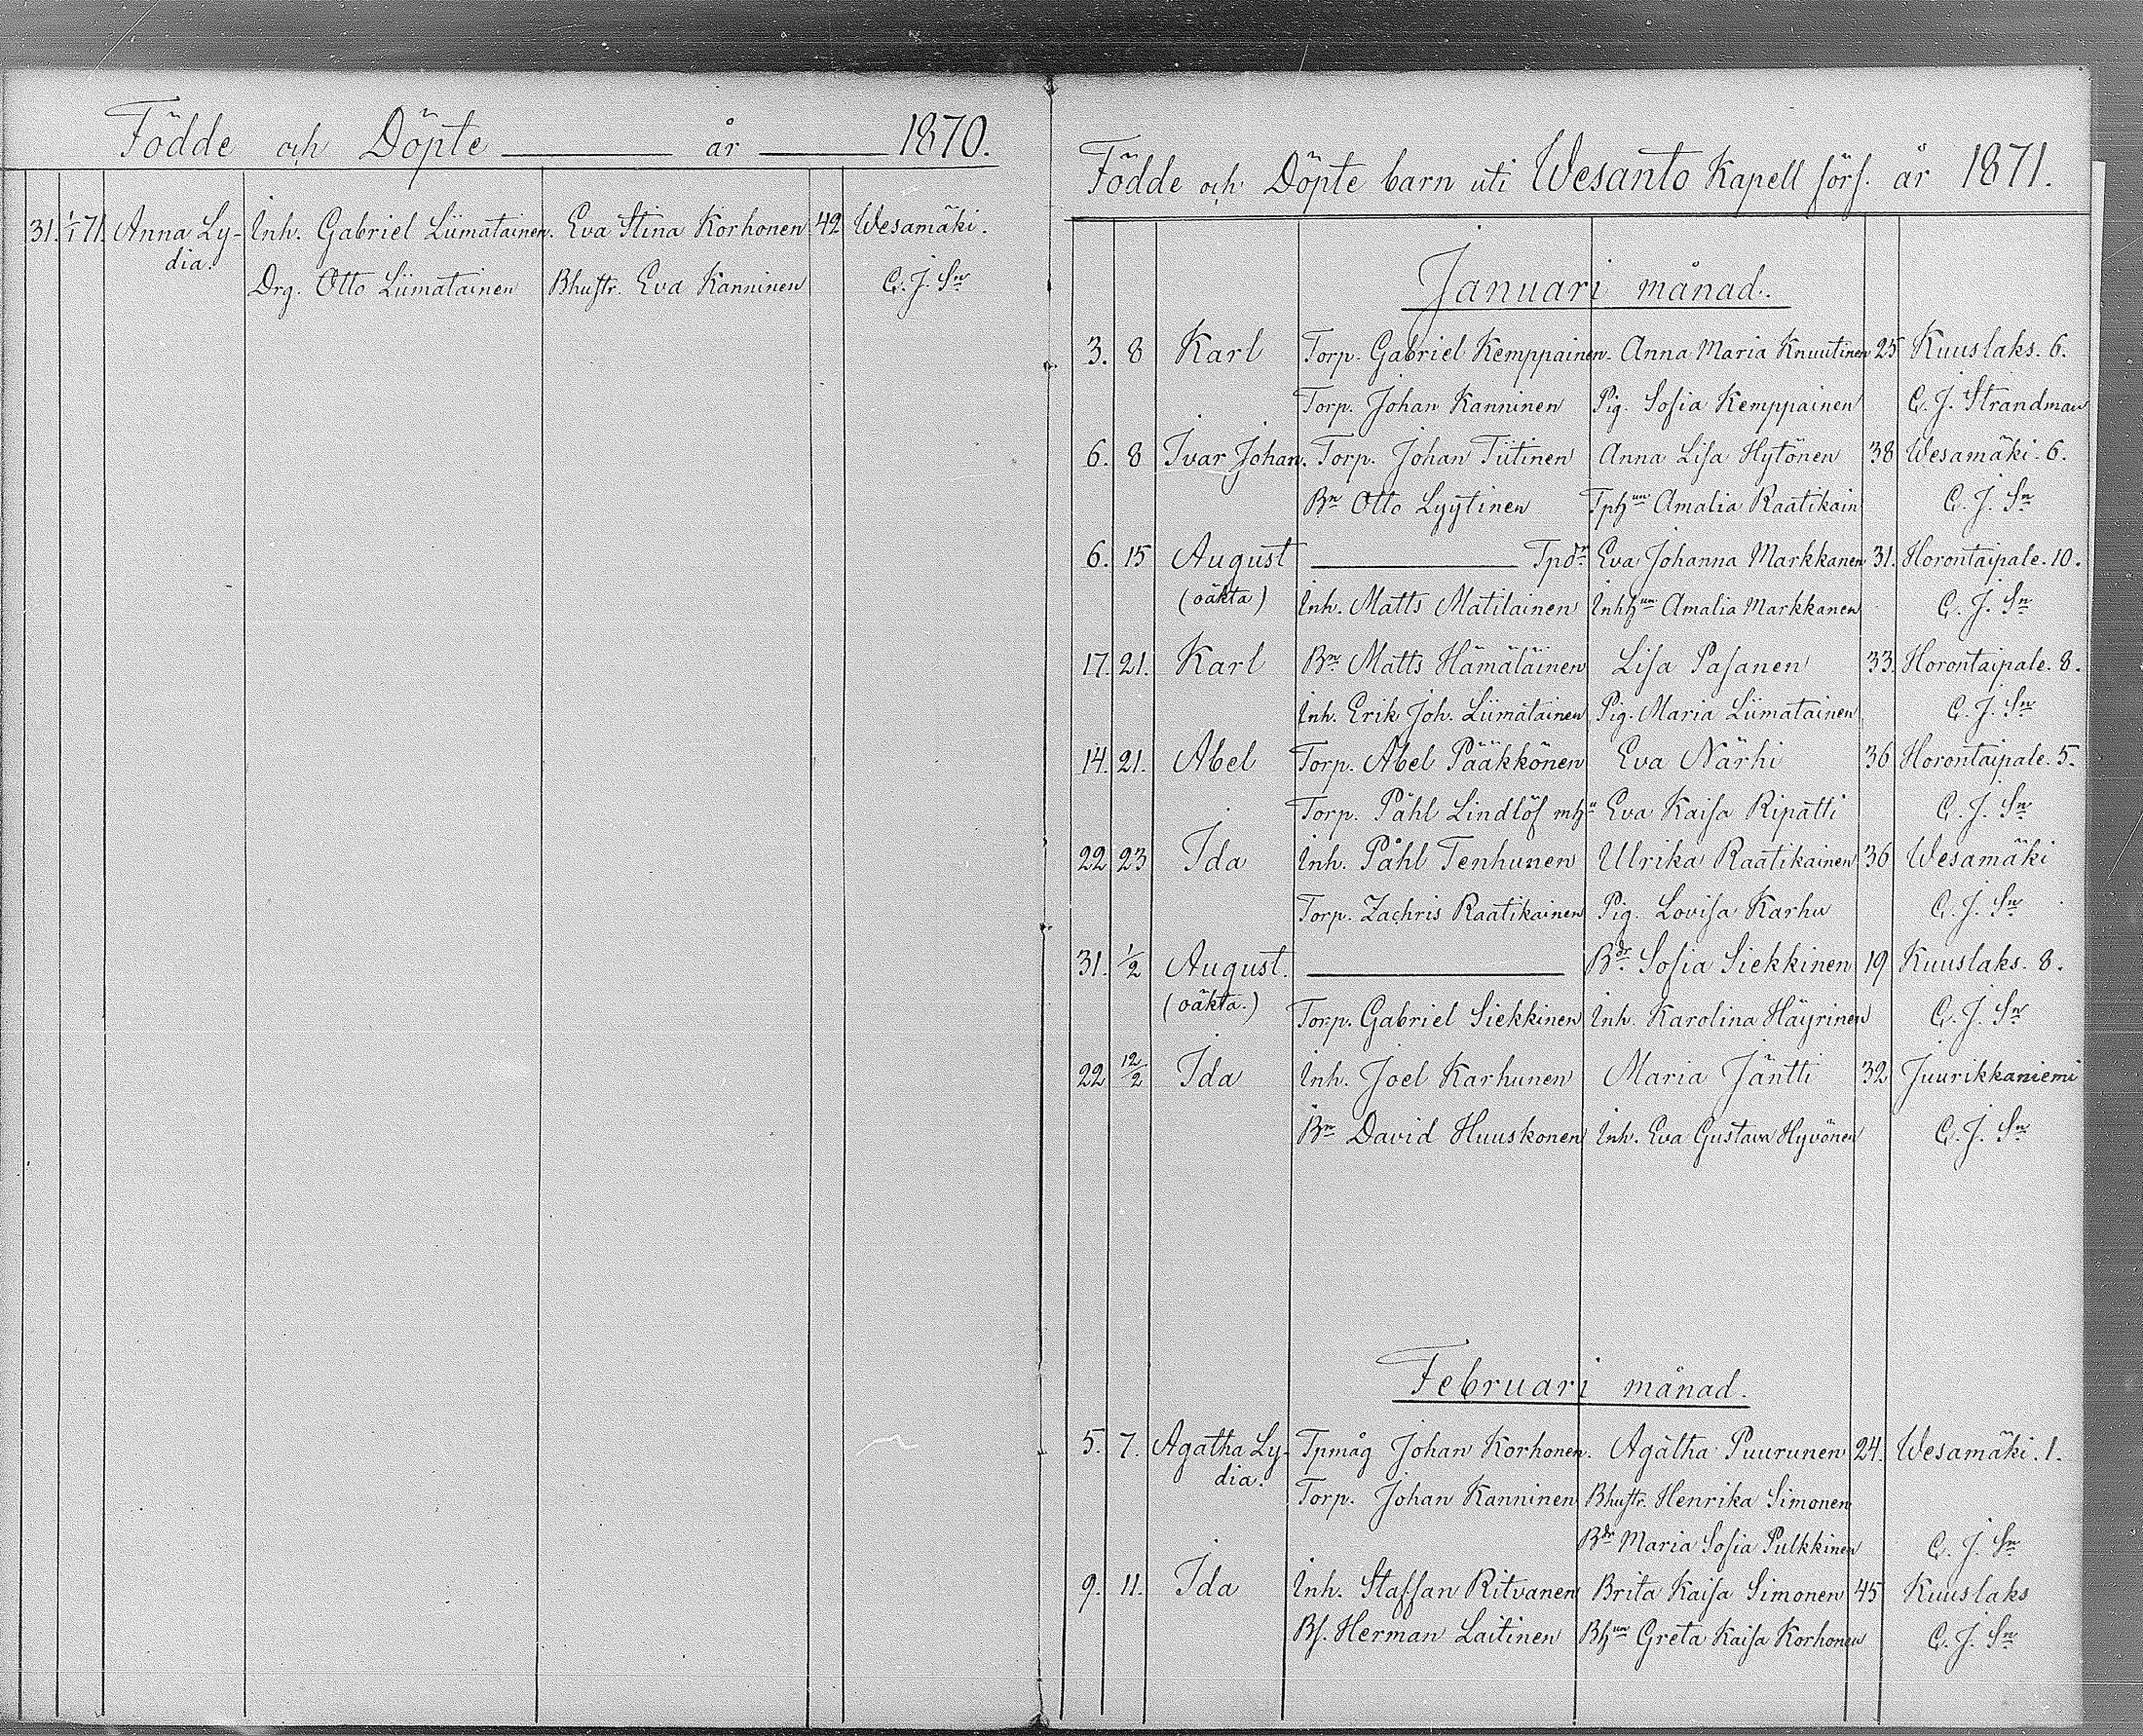 Födde och Döpte år 1870.
31. 1/1 71. Anna Ly- Inh. Gabriel Liimatainen. Eva Stina Korhonen 42 Wesamäki.
dia. Drg. Otto Liimatainen Bhustr. Eva Kanninen C. J. Sn
Födde och Döpte barn uti Wesanto Kapell förs. år 1871.
Januari månad.
3. 8 Karl Torp. Gabriel Kemppainen. Anna Maria Knuutinen 25 Kuuslaks. 6.
Torp. Johan Kanninen Pig. Sofia Kemppainen C. J. Strandman
6. 8 Ivar Johan. Torp. Johan Tiitinen Anna Lisa Hytönen 38 Wesamäki. 6.
Bn Otto Lyytinen Tphun Amalia Raatikain C. J. Sn
6. 15 August Tpdr Eva Johanna Markkanen 31. Horontaipale. 10.
(oäkta) Inh. Matts Matilainen Inhhun Amalia Markkanen C. J. Sn
17. 21. Karl Bn Matts Hämäläinen Lisa Pasanen 33. Horontaipale. 8.
Inh. Erik Joh. Liimatainen Pig. Maria Liimatainen C. J. Sn
14. 21. Abel Torp. Abel Pääkkönen Eva Närhi 36 Horontaipale. 5.
Torp. Påhl Lindlöf mh Eva Kaisa Ripatti C. J. Sn
22 23 Ida Inh. Påhl Tenhunen Ulrika Raatikainen 36 Wesamäki
Torp. Zachris Raatikainen Pig. Lovisa Karhu C. J. Sn
31. 1/2 August. Bdr Sofia Siekkinen 19 Kuuslaks. 8.
(oäkta.) Torp. Gabriel Siekkinen Inh. Karolina Häyrinen C. J. Sn
22 12/2 Ida Inh. Joel Karhunen Maria Jäntti 32 Juurikkaniemi
Bn David Huuskonen Inh. Eva Gustava Hyvönen C. J. Sn
Februari månad.
5. 7. Agatha Ly- Tpmåg Johan Korhonen. Agatha Puurunen 24. Wesamäki. 1.
dia. Torp. Johan Kanninen Bhustr. Henrika Simonen
Bdr Maria Sofia Pulkkinen C. J. Sn
9. 11. Ida Inh. Staffan Ritvanen Brita Kaisa Simonen 45 Kuuslaks
Bs. Herman Laitinen Bhun Greta Kaisa Korhonen C. J. Sn